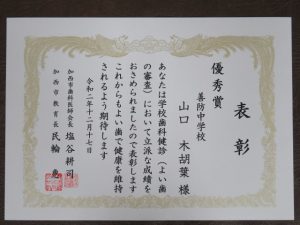 表彰
優秀賞
善防中学校
山口 木胡葉 様
あなたは学校歯科健診（よい歯
の審査）において立派な成績を
おさめられましたので表彰します
これからもよい歯で健康を維持
されるよう期待します
令和二年十二月十七日
加西市歯科医師会長 塩谷耕司
加西市教育長 民輪惠